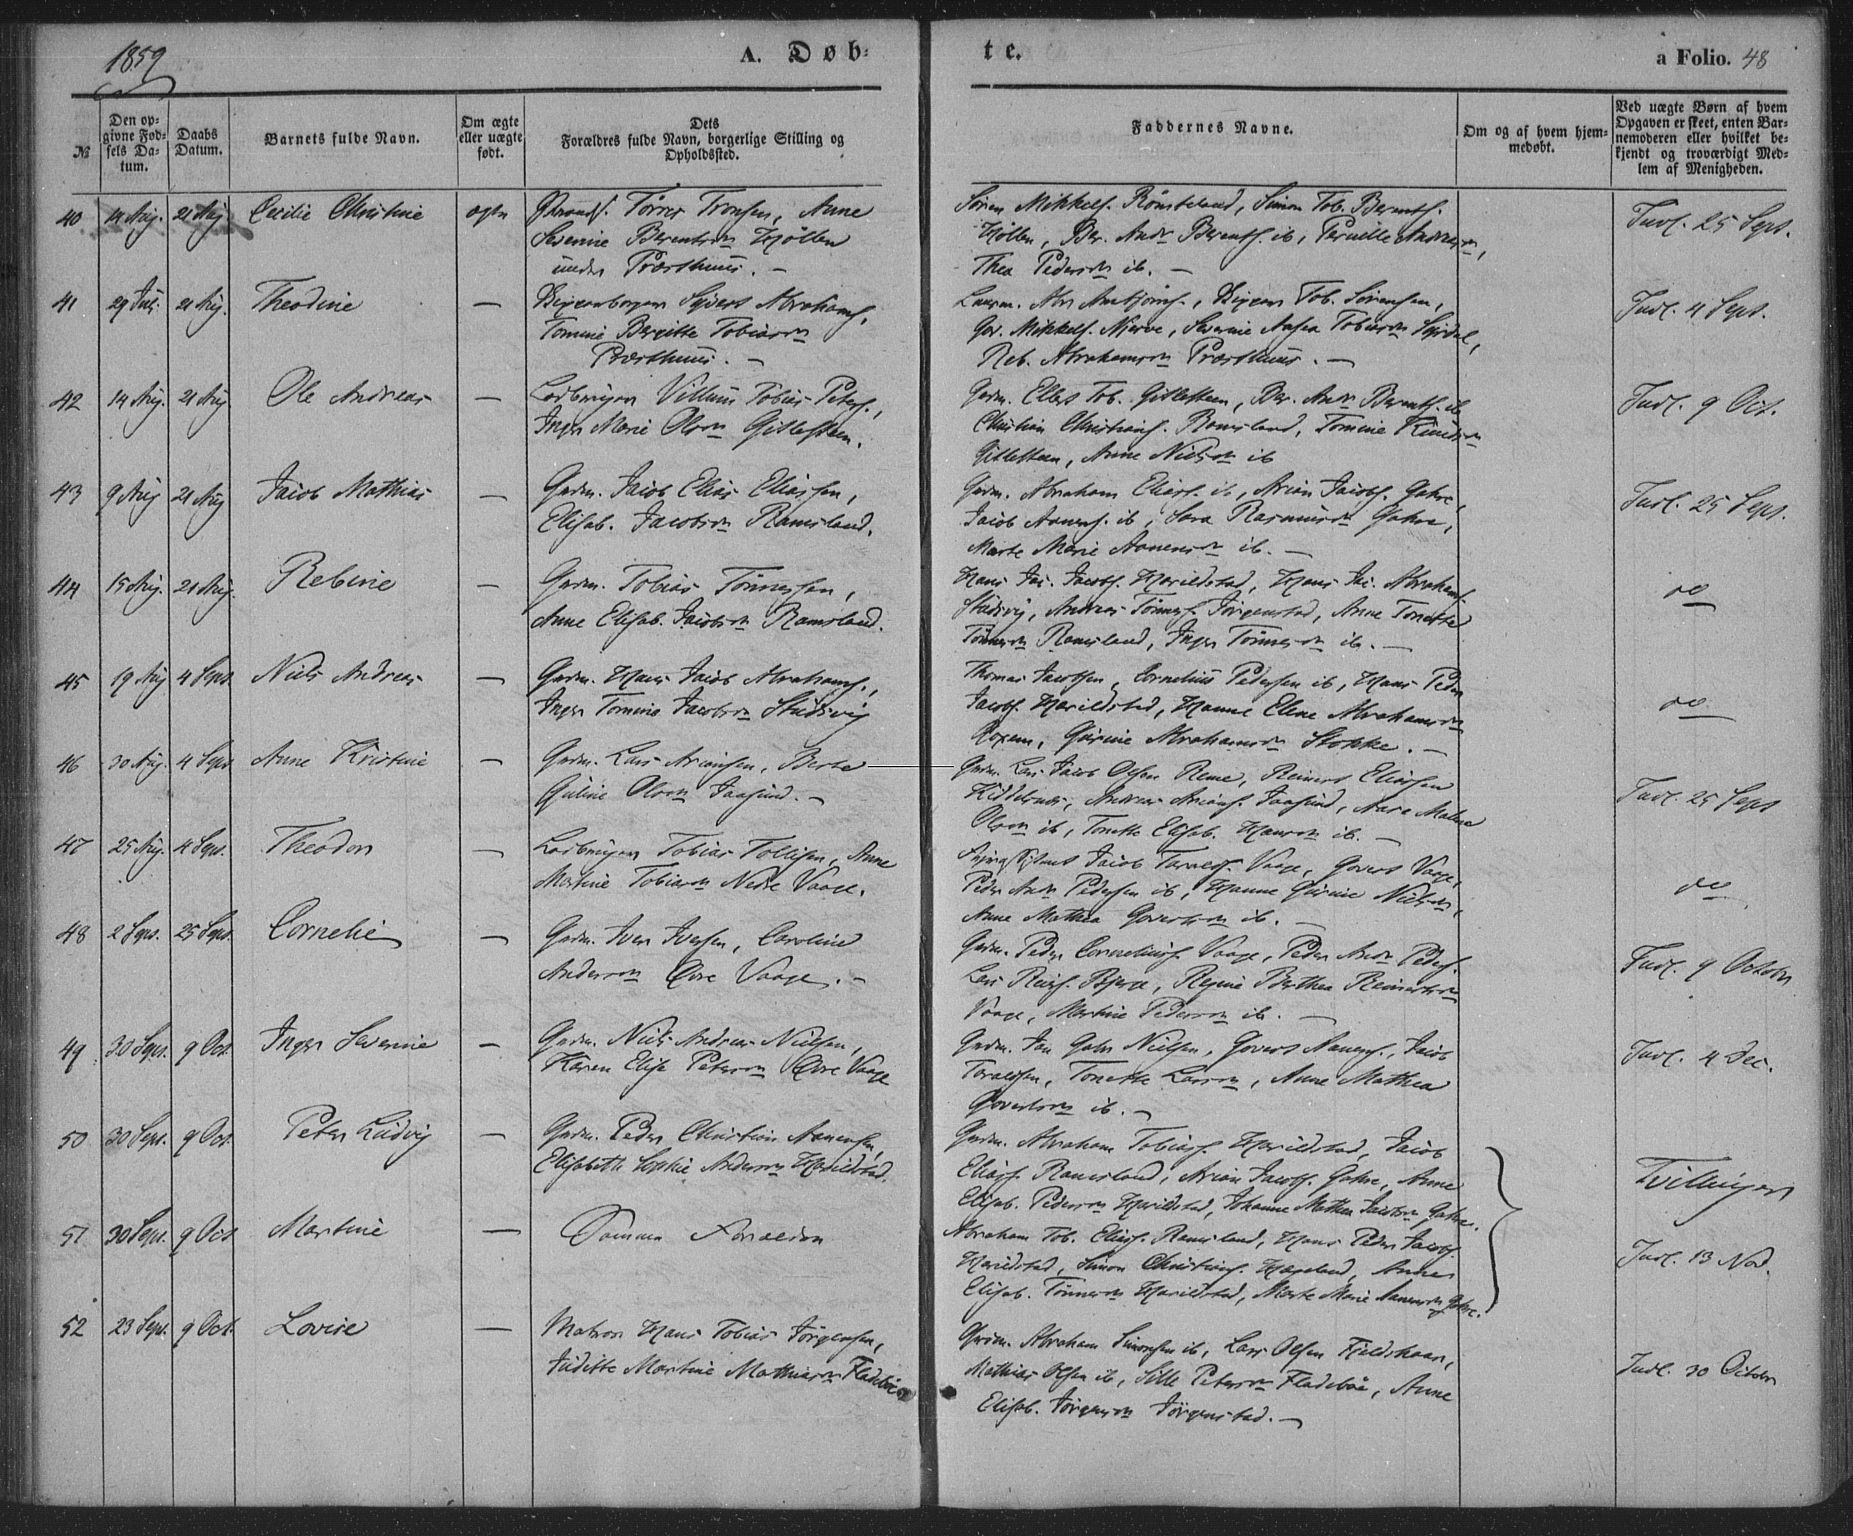 1859
A. Døb-
te.
a Folio. 48
№
Den op-
givne Fød-
sels Da-
tum.
Daabs
Datum.
Barnets fulde Navn.
Om ægte
eller uægte
født.
Dets
Forældres fulde Navn, borgerlige Stilling og
Opholdssted.
Faddernes Navne.
Om og af hvem hjem-
medøbt.
Ved uægte Børn af hvem
Opgaven er skeet, enten Bar-
nemoderen eller hvilket be-
kjendt og troværdigt Med-
lem af Menigheden.
40 14 Aug. 21 Aug. Cecilie Christine ægte Tørres Tronsen, Anne
Severine Berentsdn
under Præsthuus. —
Søren Mikkels. Simon Tob. Berents.
Ber. Andr Berents. ib, Pernille Andreasdn,
Thea Pedersdn ib. —
Indl. 25 Sept.
41 29 Jul. 21 Aug. Theodine — Sivert Abrahams.
Tomine Bergitte Tobiasdn
Præsthuus. —
Tob. Sørensen,
Gov. Mikkels. Njerve, Severine Aasea Tobiasdn
Reb. Abrahamsdn Præsthuus. —
Indl. 4 Sept.
42 14 Aug. 21 Aug. Ole Andreas — Villum Tobias Peters.,
Inger Marie Olsdn Gitlesteen.
Gaarm. Ellert Tob. Gitlesteen, Ber. Andr Berents. ib
Christian Christians. Ramsland, Tomine Knudsdn
Gitlesteen, Anne Nielsdn ib
Indl. 9 Oct.
43 9 Aug 21 Aug Jacob Mathias — Gaarm. Jacob Elias Eliassen,
Elisab. Jacobsdn Ramsland.
Gaarm. Abraham Elias. ib, Arian Jacobs. Gahre,
Jacob Aanens. ib, Sara Rasmusdn Gahre,
Marte Marie Aanensdn ib. —
Indl. 25 Sept.
44 15 Aug. 21 Aug. Rebine — Gaarm. Tobias Tønnessen,
Anne Elisab. Jacobsdn Ramsland.
Hans Jac. Jacobs. Harildstad, Hans Jac. Abrahams.
Studsvig, Andreas Tønnes. Jørgenstad, Anne Tonette
Tønnesdn Ramsland, Inger Tønnesdn ib. —
do
45 19 Aug 4 Sept. Niels Andreas — Gaarm. Hans Jacob Abrahams.,
Inger Tomine Jacobsdn Studsvig
Thomas Jacobsen, Cornelius Pedersen ib, Hans Peder
Jacobs. Harildstad, Hanne Elene Abrahamsdn
Gurine Abrahamsdn Stokke. —
do
46 30 Aug. 4 Sept Anne Kristine — Gaarm. Lars Ariansen, Berte
Guline Olsdn Jaasund. —
Gaarm. Lars Jacob Olsen Reme, Reinert Eliassen
Andreas Arians. Jaasund, Aase Malene
Olsdn ib, Tonette Elisab. Hansdn ib. —
Indl. 25 Sept
47 25 Aug. 4 Sept. Theodor — Tobias Tollisen, Anne
Martine Tobiasdn Nedre Vaage.
Jacob Taralds. Vaage, Govert Vaage,
Peder Andr Pedersen ib, Hanne Gurine Nielsdn,
Anne Mathea Govertsdn ib. —
do
48 2 Sept. 25 Sept. Cornelie — Gaarm. Iver Iversen, Caroline
Andersdn Øvre Vaage. —
Gaarm. Peder Cornelius. Vaage, Peder Andr Peders.
Regine Berthea Reinertsdn
Vaage, Martine Pedersdn ib. —
Indl. 9 October
49 30 Sept. 9 Oct. Inger Severine — Gaarm. Niels Andreas Nielsen,
Karen Elise Petersdn Øvre Vaage
Gaarm. Jan Gahr Nielsen, Govert Aanens., Jacob
Taraldsen, Tonette Larsdn, Anne Mathea
Govertsdn ib. —
Indl. 4 Dec.
50 30 Sept. 9 Oct. Peter Ludvig — Gaarm. Peder Christian Aanensen
Elisabeth Sophie Andersdn Harildstad.
Gaarm. Abraham Tobias. Harildstad, Jacob
Elias. Ramsland, Arian Jacobs. Gahre, Anne
Elisab. Pedersdn Harildstad, Johanne Mathea Jacobsdn Gahre.
Tvillinger
51 30 Sept. 9 Oct Martine — Samme Forældre
Abraham Tob. Elias. Ramsland, Hans Peder Jacobs.
Harildstad, Simon Christians. Hageland, Andrea
Elisab. Tønnesdn Harildstad, Marte Marie Aanensdn Gahre.
Indl. 13 Nov.
52 23 Sept. 9 Oct. Lovise — Matros Hans Tobias Jørgensen,
Juditte Martine Mathiasdn Fladebøe
Gaarm. Abraham Simonsen ib, Lars Olsen Fjeldskaar,
Mathias Olsen ib, Sille Petersdn Fladebøe, Anne
Elisab. Jørgensdn Jørgenstad. —
Indl. 30 October